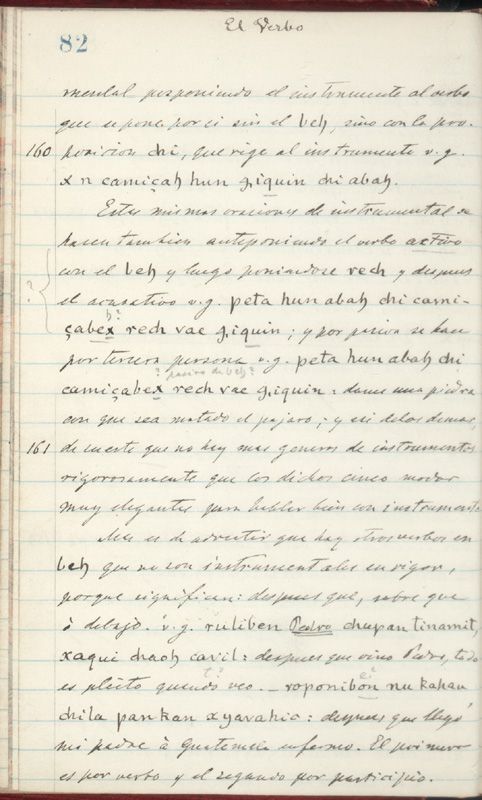 El Verbo
82
mental posponiendo el instrumento al verbo
que se pone por si sin el beh, sino con la pro-
160 posicion chi, que rige al instrumento v.g.
x n camiçah hun ꜩiquin chi abah.
Estas mismas oraciones de instrumental se
hacen tambien anteponiendo el verbo activo
? con el beh y luego poniendose rech y despues
el acusativo v.g. peta hun abah chi cami-
h?
çabex rech vae ꜩiquin; y por pasiva se hace
por tercera persona v.g. peta hun abah chi
? pasiva de beh?
camiçabex rech vae ꜩiquin: dame una piedra
con que sea matado el pajaro; y asi de los demas,
161 de suerte que no hay mas generos de instrumentos
rigorosamente que los dichos cinco modos
muy elegantes para hablar bien con instrumento
Mas es de advertir que hay otros verbos en
beh que no son instrumentales en rigor,
porque significan: despues que, sobre que
ò debajo. v.g. ruliben Pedro chupan tinamit,
xaqui chaoh cavil: despues que vino Pedro, todo
es pleito quando veo. _ roponibon nu kahau
chila pankan x yavahic: despues que llegó
mi padre à Guatemala enfermo. El primero
es por verbo y el segundo por participio.